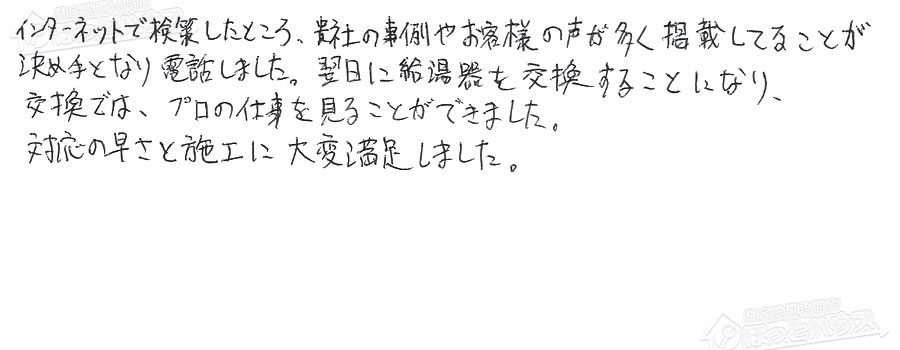 インターネットで検策したところ、貴社の事例やお客様の声が多く掲載してることが
決め手となり電話しました。翌日に給湯器を交換することになり、
交換では、プロの仕事を見ることができました。
対応の早さと施工に大変満足しました。
住宅設備専門店
ほっとハウス